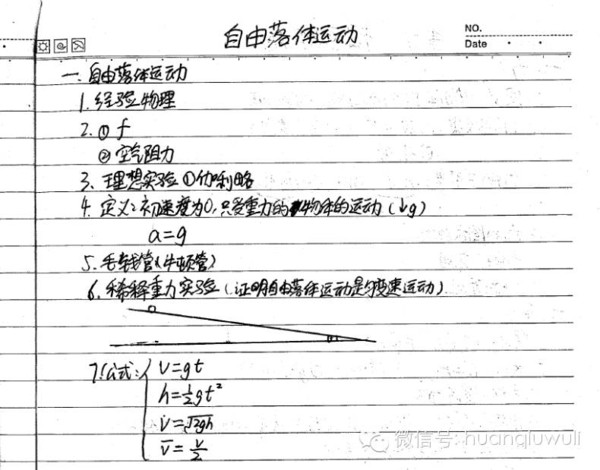 自由落体运动
NO.
Date
一.自由落体运动
1.经验物理
2.①f
②空气阻力
3.理想实验①伽利略
4.定义:初速度为0,只受重力的物体的运动(↓g)
a=g
5.毛钱管(牛顿管)
6.稀释重力实验(证明自由落体运动是匀变速运动)
7.公式:
v=gt
h=½gt²
v=√2gh
v̅=v/2
微信号: huanqiuwuli